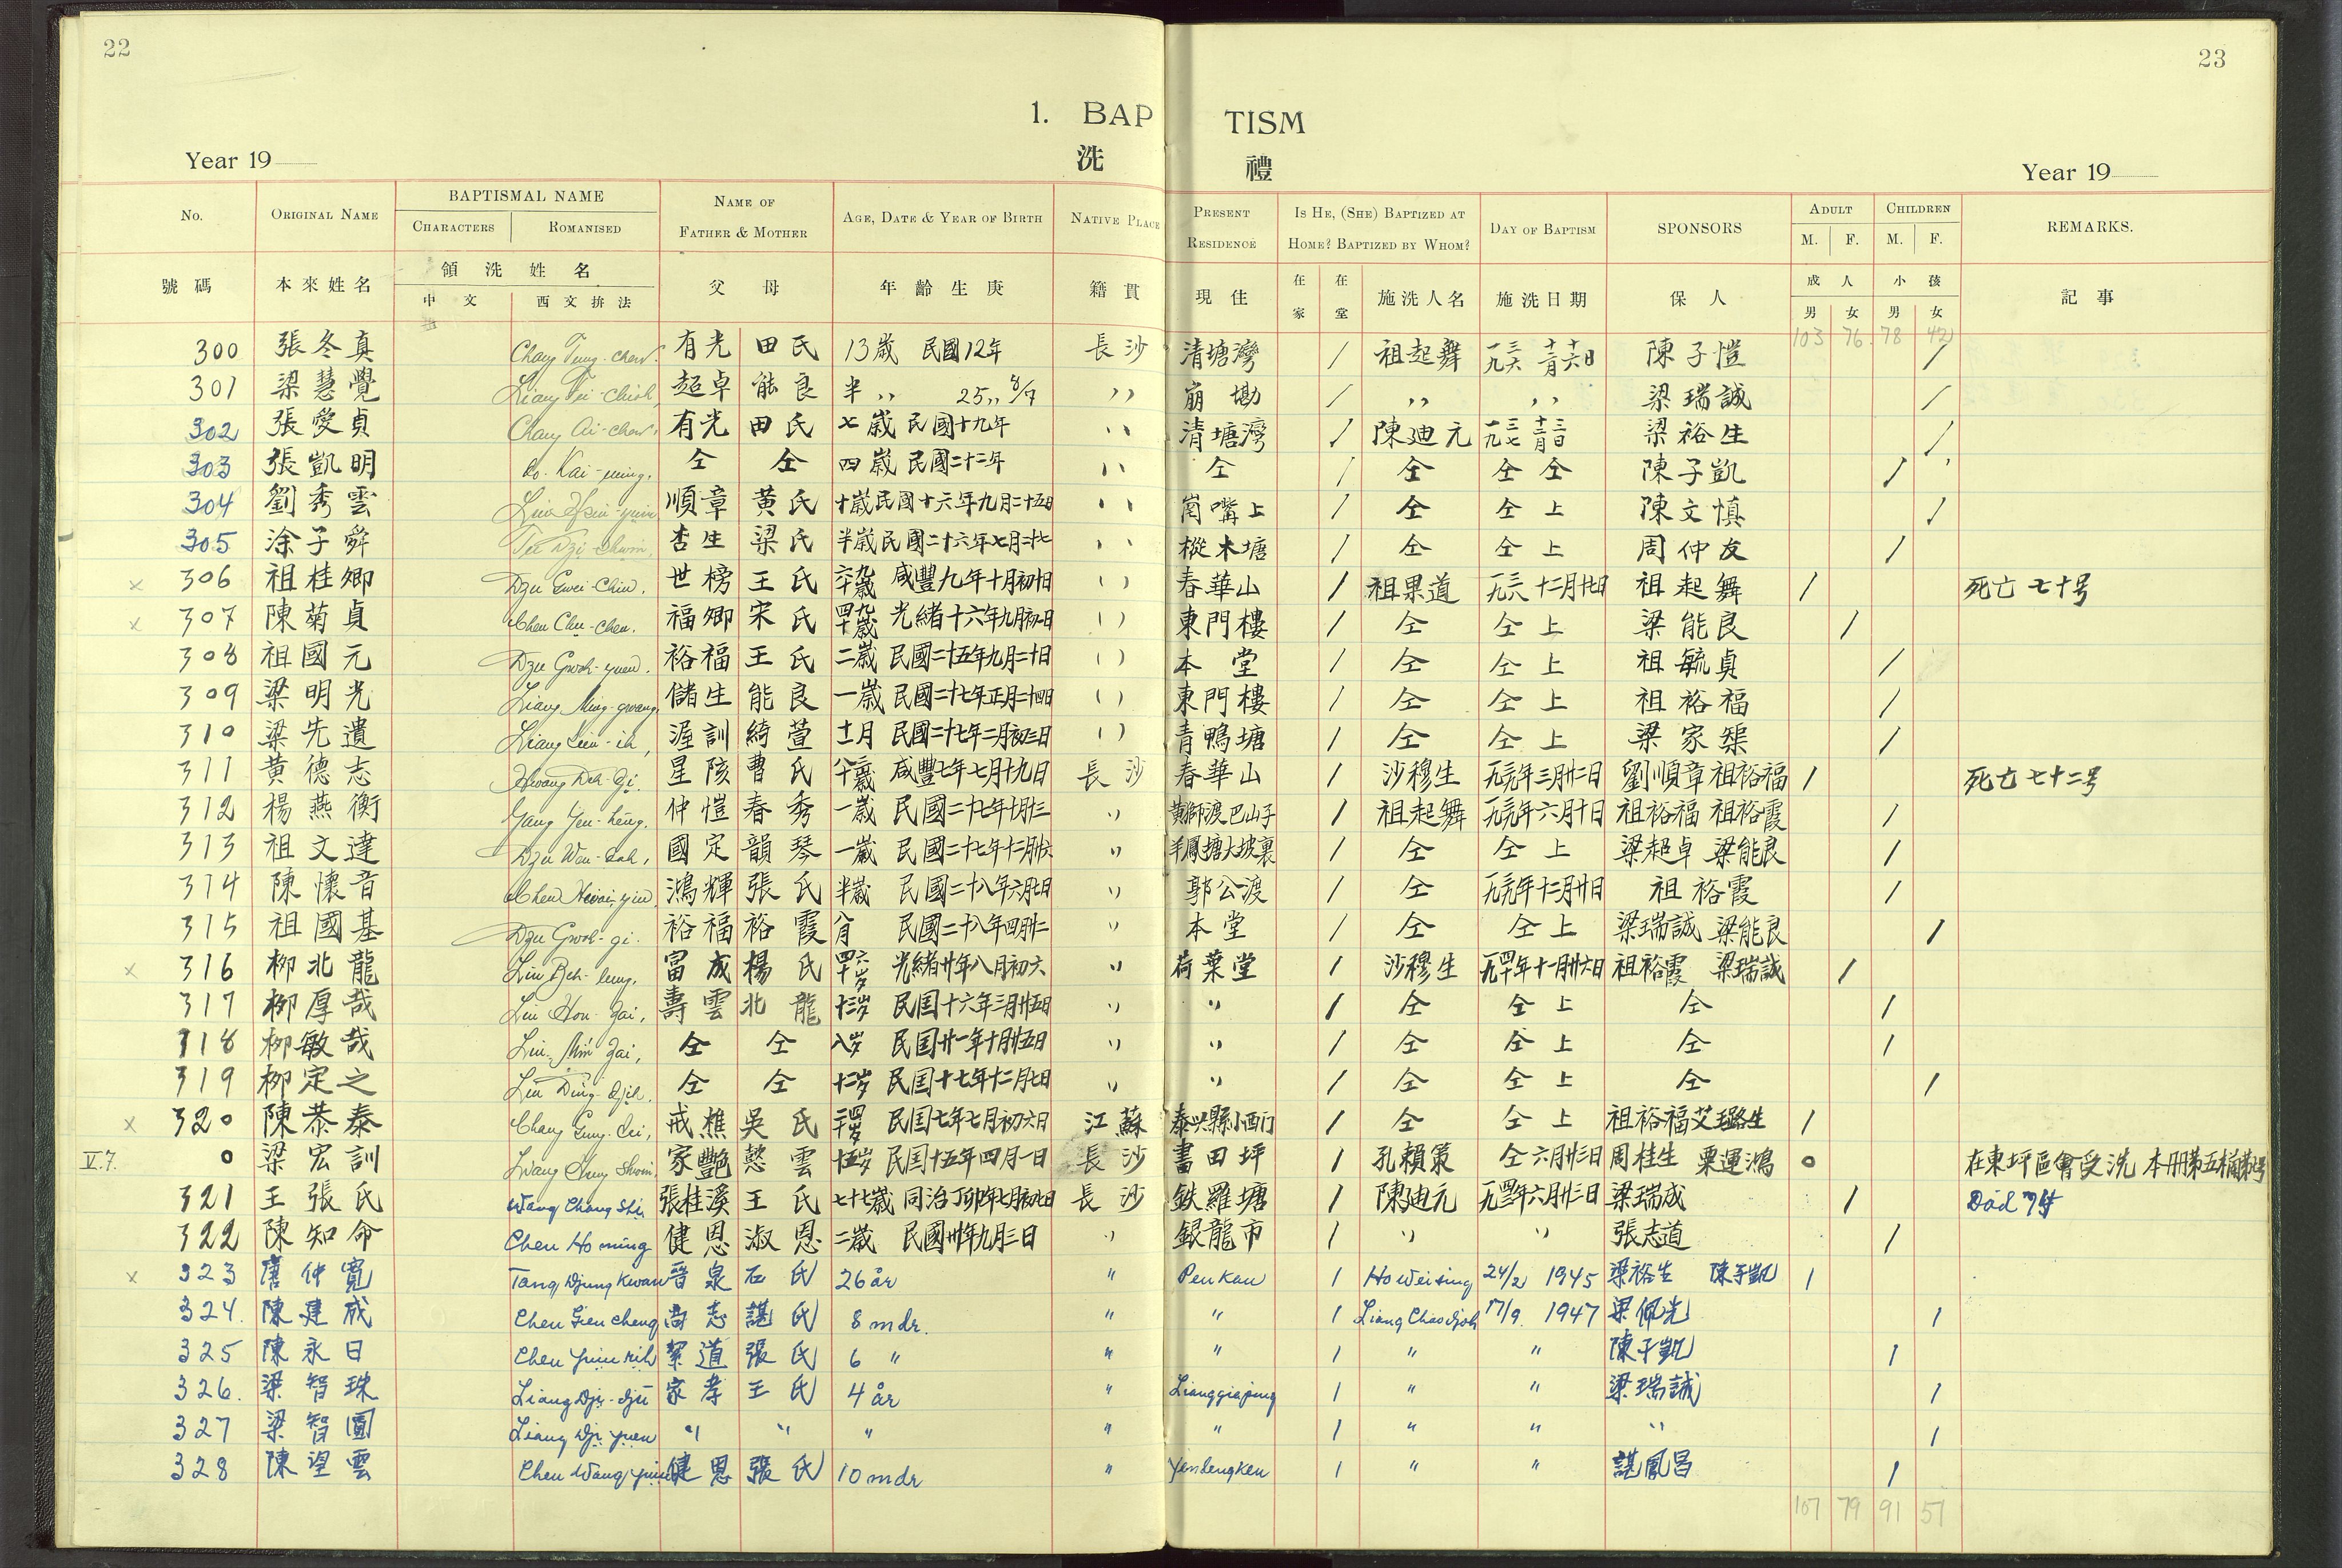 22
23
1. BAP TISM
Year 19
洗 禮
Year 19
No. ORIGINAL NAME BAPTISMAL NAME CHARACTERS ROMANISED NAME OF FATHER & MOTHER AGE, DATE & YEAR OF BIRTH NATIVE PLACE PRESENT RESIDENCE IS HE, (SHE) BAPTIZED AT HOME? BAPTIZED BY WHOM? DAY OF BAPTISM SPONSORS ADULT M. F. CHILDREN M. F. REMARKS.
號碼 本來姓名 領洗姓名 中文 西文拚法 父母 年齡生庚 籍貫 現住 在家 在堂 施洗人名 施洗日期 保人 成人 男 女 小孩 男 女 記事
103 76 78 42
300 張冬真 有光 田氏 13歲 民國12年 長沙 清塘灣 / 祖起舞 一九三六 十二月十六日 陳子愷 /
301 梁慧覺 超卓 能良 半,, 25,, 8/7 ,, 崩墈 / ,, ,, 梁瑞誠 /
302 張愛貞 有光 田氏 七歲 民國十九年 ,, 清塘灣 / 陳廸元 一九三七 十二月三日 梁裕生 /
303 張凱明 do. Kai-ming. 仝 仝 四歲 民國二十二年 ,, 仝 / 仝 仝仝 陳子凱 /
304 劉秀雲 順章 黃氏 十歲民國十六年九月二十五日 ,, 嘴上 / 仝 仝上 陳文慎 /
305 涂子舜 杏生 梁氏 半歲民國二十六年七月 ,, 樅木塘 / 仝 仝上 周仲友 /
x 306 祖桂卿 Dzu Gwei-Chin. 世榜 王氏 咸豐九年十月初十日 ,, 春華山 / 祖果道 一九三八 十二月廿日 祖起舞 / 死亡七十号
x 307 陳菊貞 Chen Chu-Chen. 福卿 宋氏 四十九歲 光緒十六年九月初一日 ,, 東門樓 / 仝 仝上 梁能良 /
308 祖國元 Dzu Gwoh-yuen. 裕福 王氏 二歲 民國二十五年九月二十日 ,, 本堂 / 仝 仝上 祖毓貞 /
309 梁明光 Liang Ming-gwang, 儲生 能良 一歲 民國二十七年正月二十四日 ,, 東門樓 / 仝 仝上 祖裕福 /
310 梁先遺 渥訓 綺萱 十二月 民國二十七年二月初三日 ,, 青鴨塘 / 仝 仝上 梁家榘 /
311 黃德志 Hwang Deh-Dji. 星陔 曹氏 咸豐七年七月十九日 長沙 春華山 / 沙穆生 一九三九年三月廿二日 劉順章 祖裕福 / 死亡七十二号
312 楊燕衡 Yang Yen-heng. 仲愷 春秀 一歲 民國二十七年十月廿三 ,, 黃獅渡巴山子 / 祖起舞 一九三九年六月十日 祖裕福 祖裕霞 /
313 祖文達 Dzu Wen-Dah, 國定 韻琴 一歲 民國二十七年十二月廿六 ,, 羊鳳塘大坡裏 / 仝 仝上 梁超卓 梁能良 /
314 陳懷音 Chen Hwai-yin 鴻輝 張氏 半歲 民國二十八年六月七日 ,, 郭公渡 / 仝 一九三九年十二月廿日 祖裕霞 /
315 祖國基 Dzu Gwoh-gi. 裕福 裕霞 八月 民國二十八年四月廿二 ,, 本堂 / 仝 仝上 梁瑞誠 梁能良 /
x 316 柳北龍 Liu Beh-lung. 富成 楊氏 四十六岁 光緒廿年八月初六 ,, 荷葉堂 / 沙穆生 一九四〇年十一月廿六日 祖裕霞 梁瑞誠 /
317 柳厚哉 Liu Hou-Zai, 壽雲 北龍 十三岁 民国十六年三月廿五日 ,, ,, / 仝 仝上 仝 /
318 柳敏哉 Liu Min Zai, 仝 仝 八岁 民国廿一年十月廿五日 ,, ,, / 仝 仝上 仝 /
319 柳定之 Liu Ding-Djih. 仝 仝 十二岁 民国十七年十二月七日 ,, ,, / 仝 仝上 仝 /
x 320 陳恭泰 戒樵 吳氏 民国七年七月初六日 江蘇 泰兴縣小西门 / 仝 仝上 祖裕福 艾璐生 /
V.7. 0 梁宏訓 家艷 慧雲 十五岁 民国十五年四月一日 長沙 書田坪 / 孔賴策 仝六月廿三日 周桂生 粟運鴻 0 在東坪區會受洗 本冊第五
321 王張氏 Wang Chang Shi, 張桂溪 王氏 七十七歲 同治丁卯年七月初七日 長沙 鉄羅塘 / 陳廸元 一九四三年六月廿三日 梁瑞成 / Död 75
322 陳知命 Chen Ho ming 健恩 淑恩 二歲 民國卅年九月三日 ,, 銀龍市 / ,, ,, 張志道 /
x 323 唐仲寬 Tang Djung Kwan 晉泉 石氏 26 år " Penkau 1 Ho Wei sing 24/2 1945 梁裕生 陳子凱 1
324. 陳建成 Chen Gien Cheng 尚志 諶氏 8 mdr. " " 1 Liang Chao djoh 17/9. 1947 梁佩光 1
325 陳永日 Chen Yuin Rih 絜道 張氏 6 " " " 1 " " 陳子凱 1
326. 梁智珠 Liang Dji-dju 家孝 王氏 4 år " Lianggiaping 1 " " 梁瑞誠 1
327 梁智圓 Liang Dji yuen " " " " " 1 " " " 1
328 陳望雲 Chen Wang yuin 健恩 張氏 10 mdr " 1 " " 諶鳳昌 1
107 79 91 51